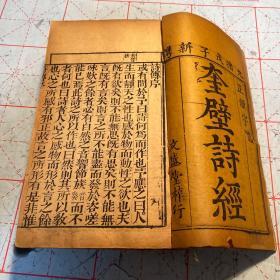 詩傳序
或有問於予曰詩何為而作也予應之曰人
生而靜天之性也感於物而動性之欲也夫
既有欲矣則不能無思既有思矣則不能無
言既有言矣則言之所不能盡而發於咨嗟
咏歎之餘者必有自然之音響節族而不
能已焉此詩之所以作也曰然則其所以教
者何也曰詩者人心之感物而形於言之餘
也心之所感有邪正故言之所形有是非惟
子新
奎璧詩經
文盛堂梓行